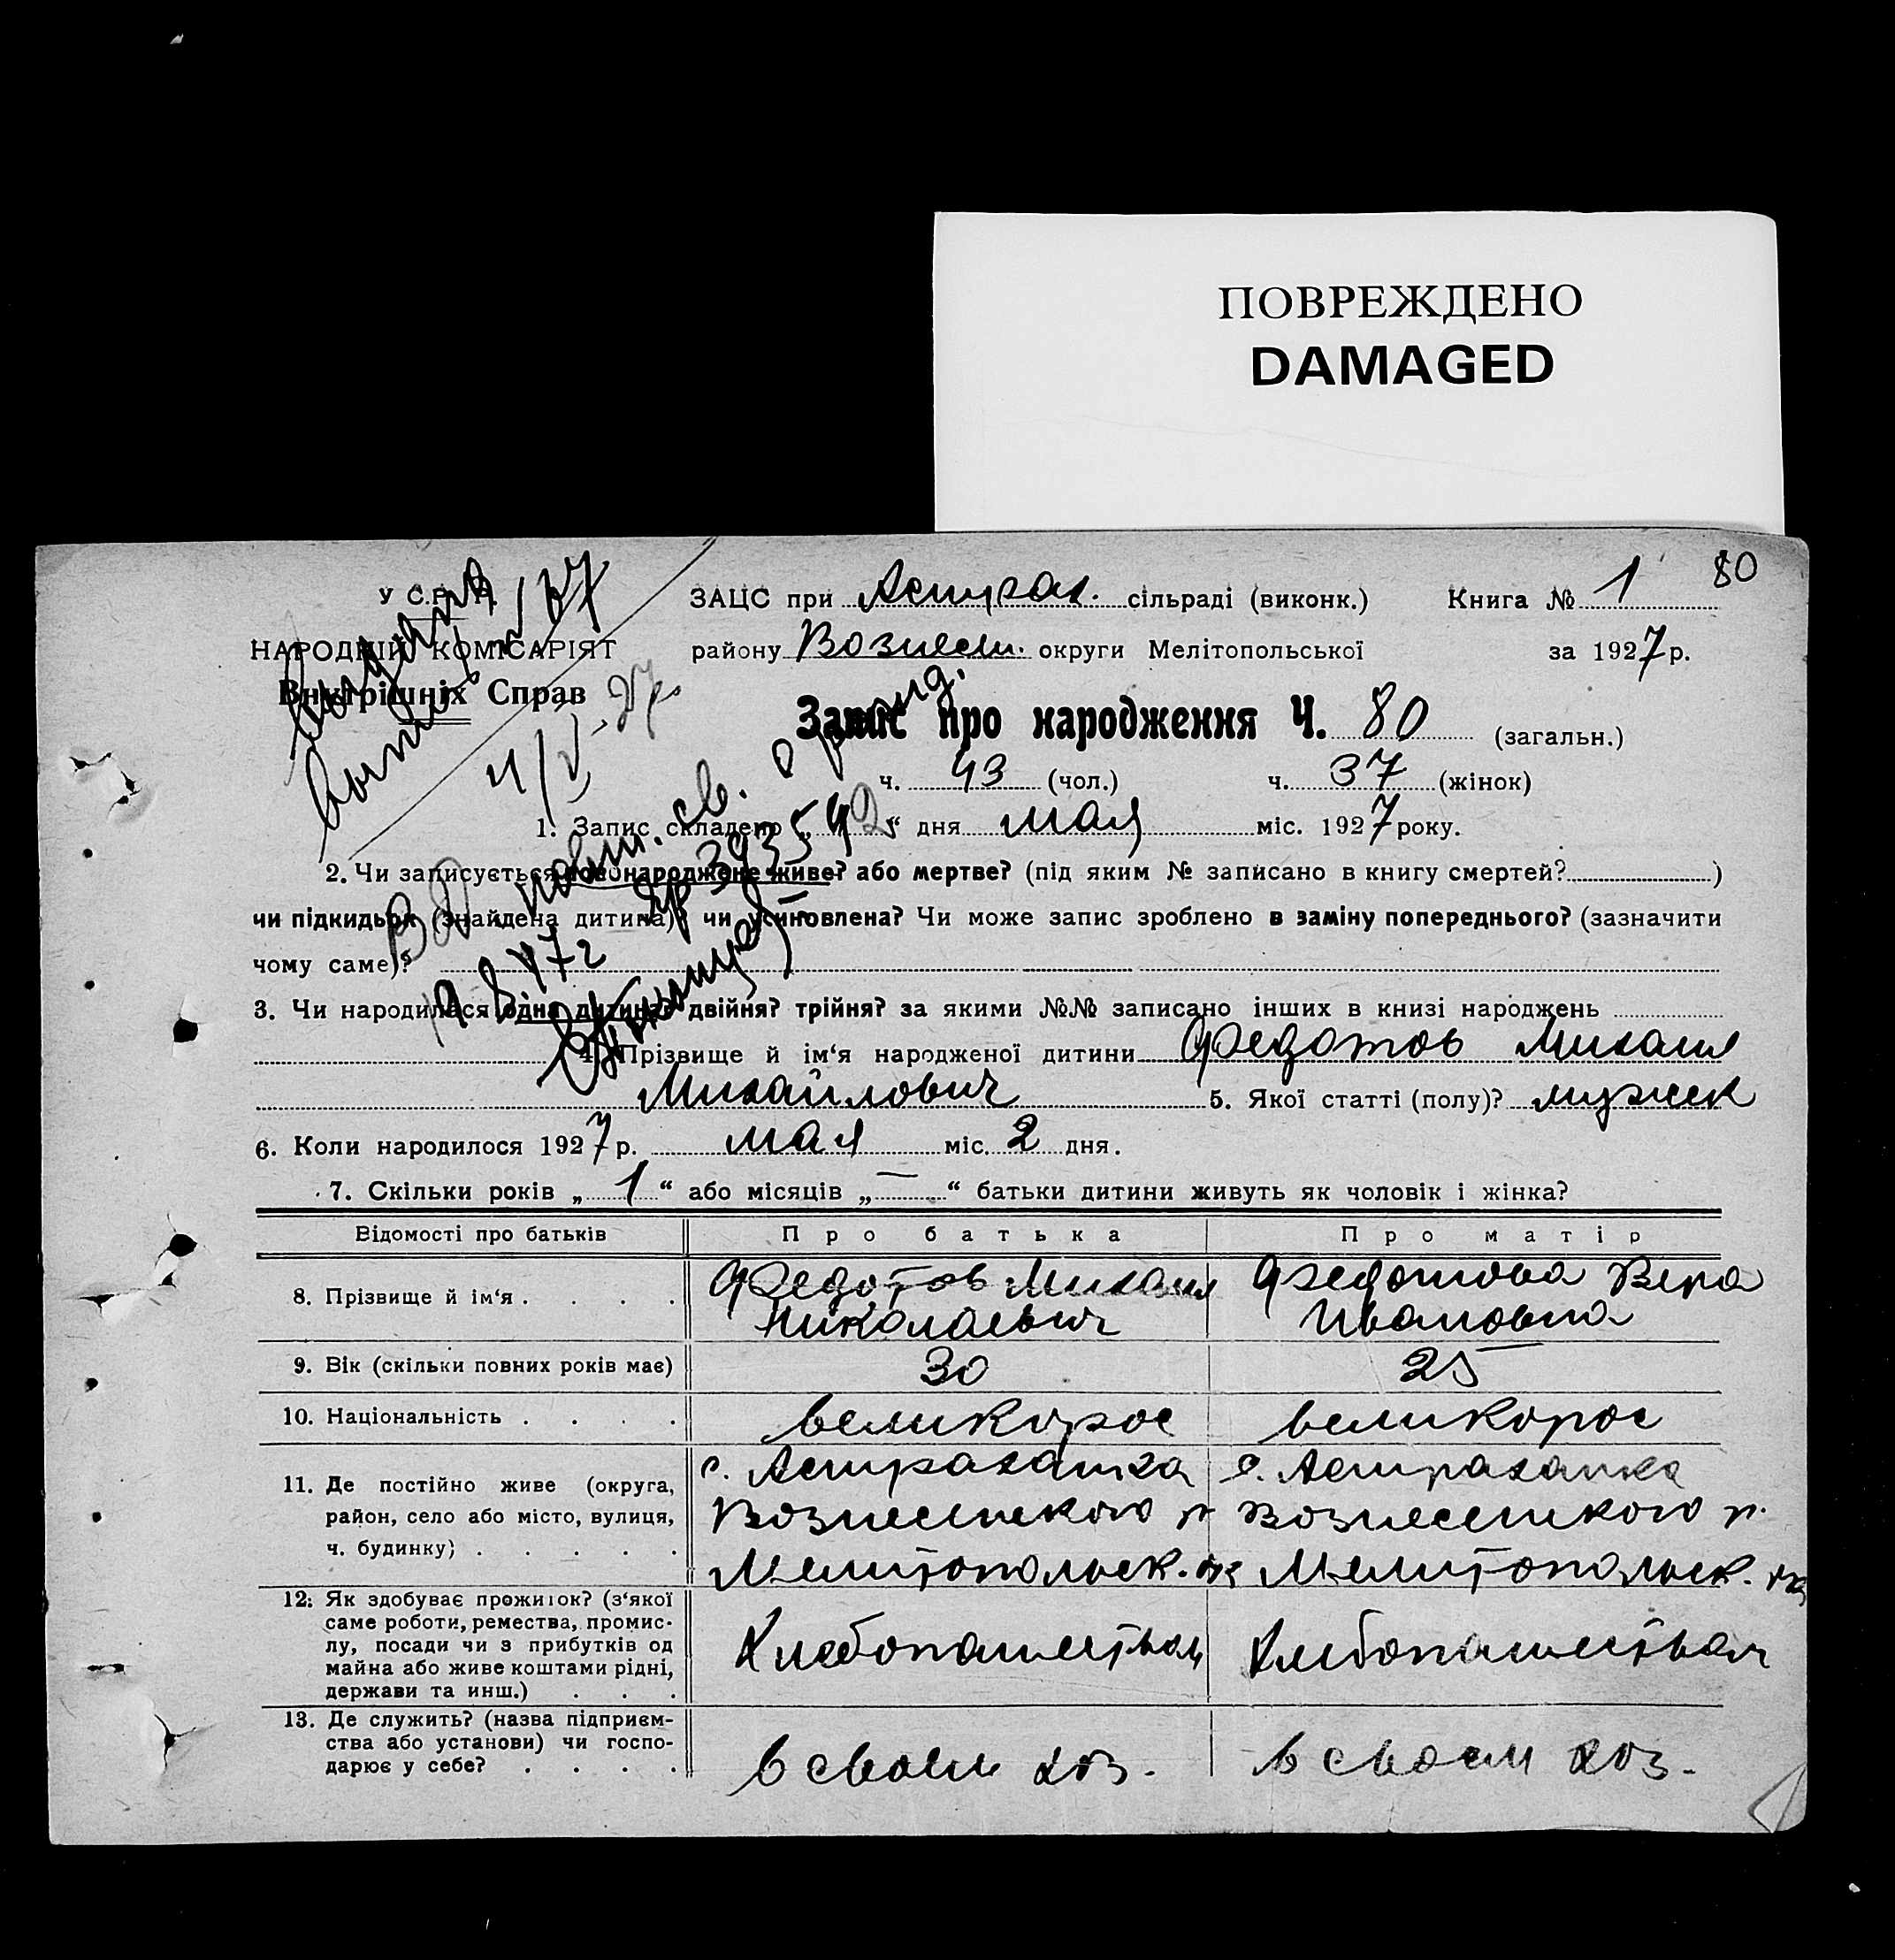 ПОВРЕЖДЕНО
DAMAGED
80
У.С.Р.Р.
НАРОДНІЙ КОМІСАРІЯТ
Внутрішніх Справ
4/V-27
ЗАЦС при Астрах. сільраді (виконк.) Книга № 1
району Вознесен. округи Мелітопольської за 1927 р.
Запис про народження Ч. 80 (загальн.)
ч. 43 (чол.) ч. 37 (жінок)
1. Запис складено „ “ дня мая міс. 1927 року.
2. Чи записується новонароджене живе? або мертве? (під яким № записано в книгу смертей? )
чи підкидьок (знайдена дитина)? чи усиновлена? Чи може запис зроблено в заміну попереднього? (зазначити
чому саме)?
ВД повт. св. о рожд.
19.8.47г
3. Чи народилася одна дитина? двійня? трійня? за якими №№ записано інших в книзі народжень
4. Прізвище й ім‘я народженої дитини Федотов Михаил
Михайлович 5. Якої статті (полу)? мужск
6. Коли народилося 1927 р. мая міс. 2 дня.
7. Скільки років „ 1 “ або місяців „ — “ батьки дитини живуть як чоловік і жінка?
Відомості про батьків Про батька Про матір
8. Прізвище й ім‘я . . . . Федотов Михаил Федотова Вера
Николаевич Ивановна
9. Вік (скільки повних років має) 30 25
10. Національність . . . . великорос великорос
11. Де постійно живе (округа, с. Астраханка с. Астраханка
район, село або місто, вулиця, Вознесенского р Вознесенского р.
ч. будинку) . . . . . Мелитопольск. Мелитопольск.
12. Як здобуває прожиток? (з‘якої
саме роботи, ремества, промис-
лу, посади чи з прибутків од Хлебопашеством Хлебопашеством
майна або живе коштами рідні,
держави та инш.) . . .
13. Де служить? (назва підприєм-
ства або установи) чи госпо-
дарює у себе? . . . . в своем хоз. в своем хоз.